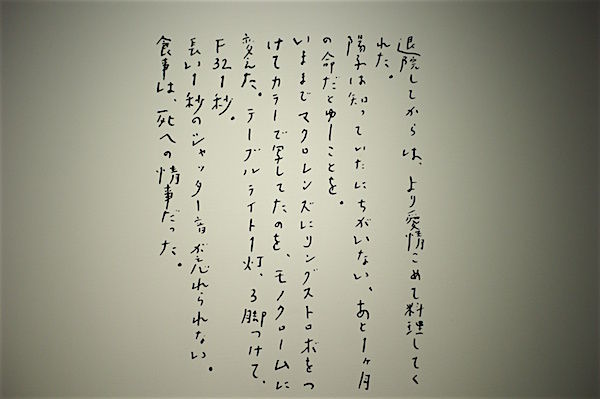 退院してからは、より愛情こめて料理してく
れた。
陽子は知っていたにちがいない、あと1ヶ月
の命だとゆーことを。
いままでマクロレンズにリングストロボをつ
けてカラーで写してたのを、モノクロームに
変えた。テーブルライト1灯、3脚つけて、
F32 1秒。
長い1秒のシャッター音が忘れられない。
食事は、死への情事だった。